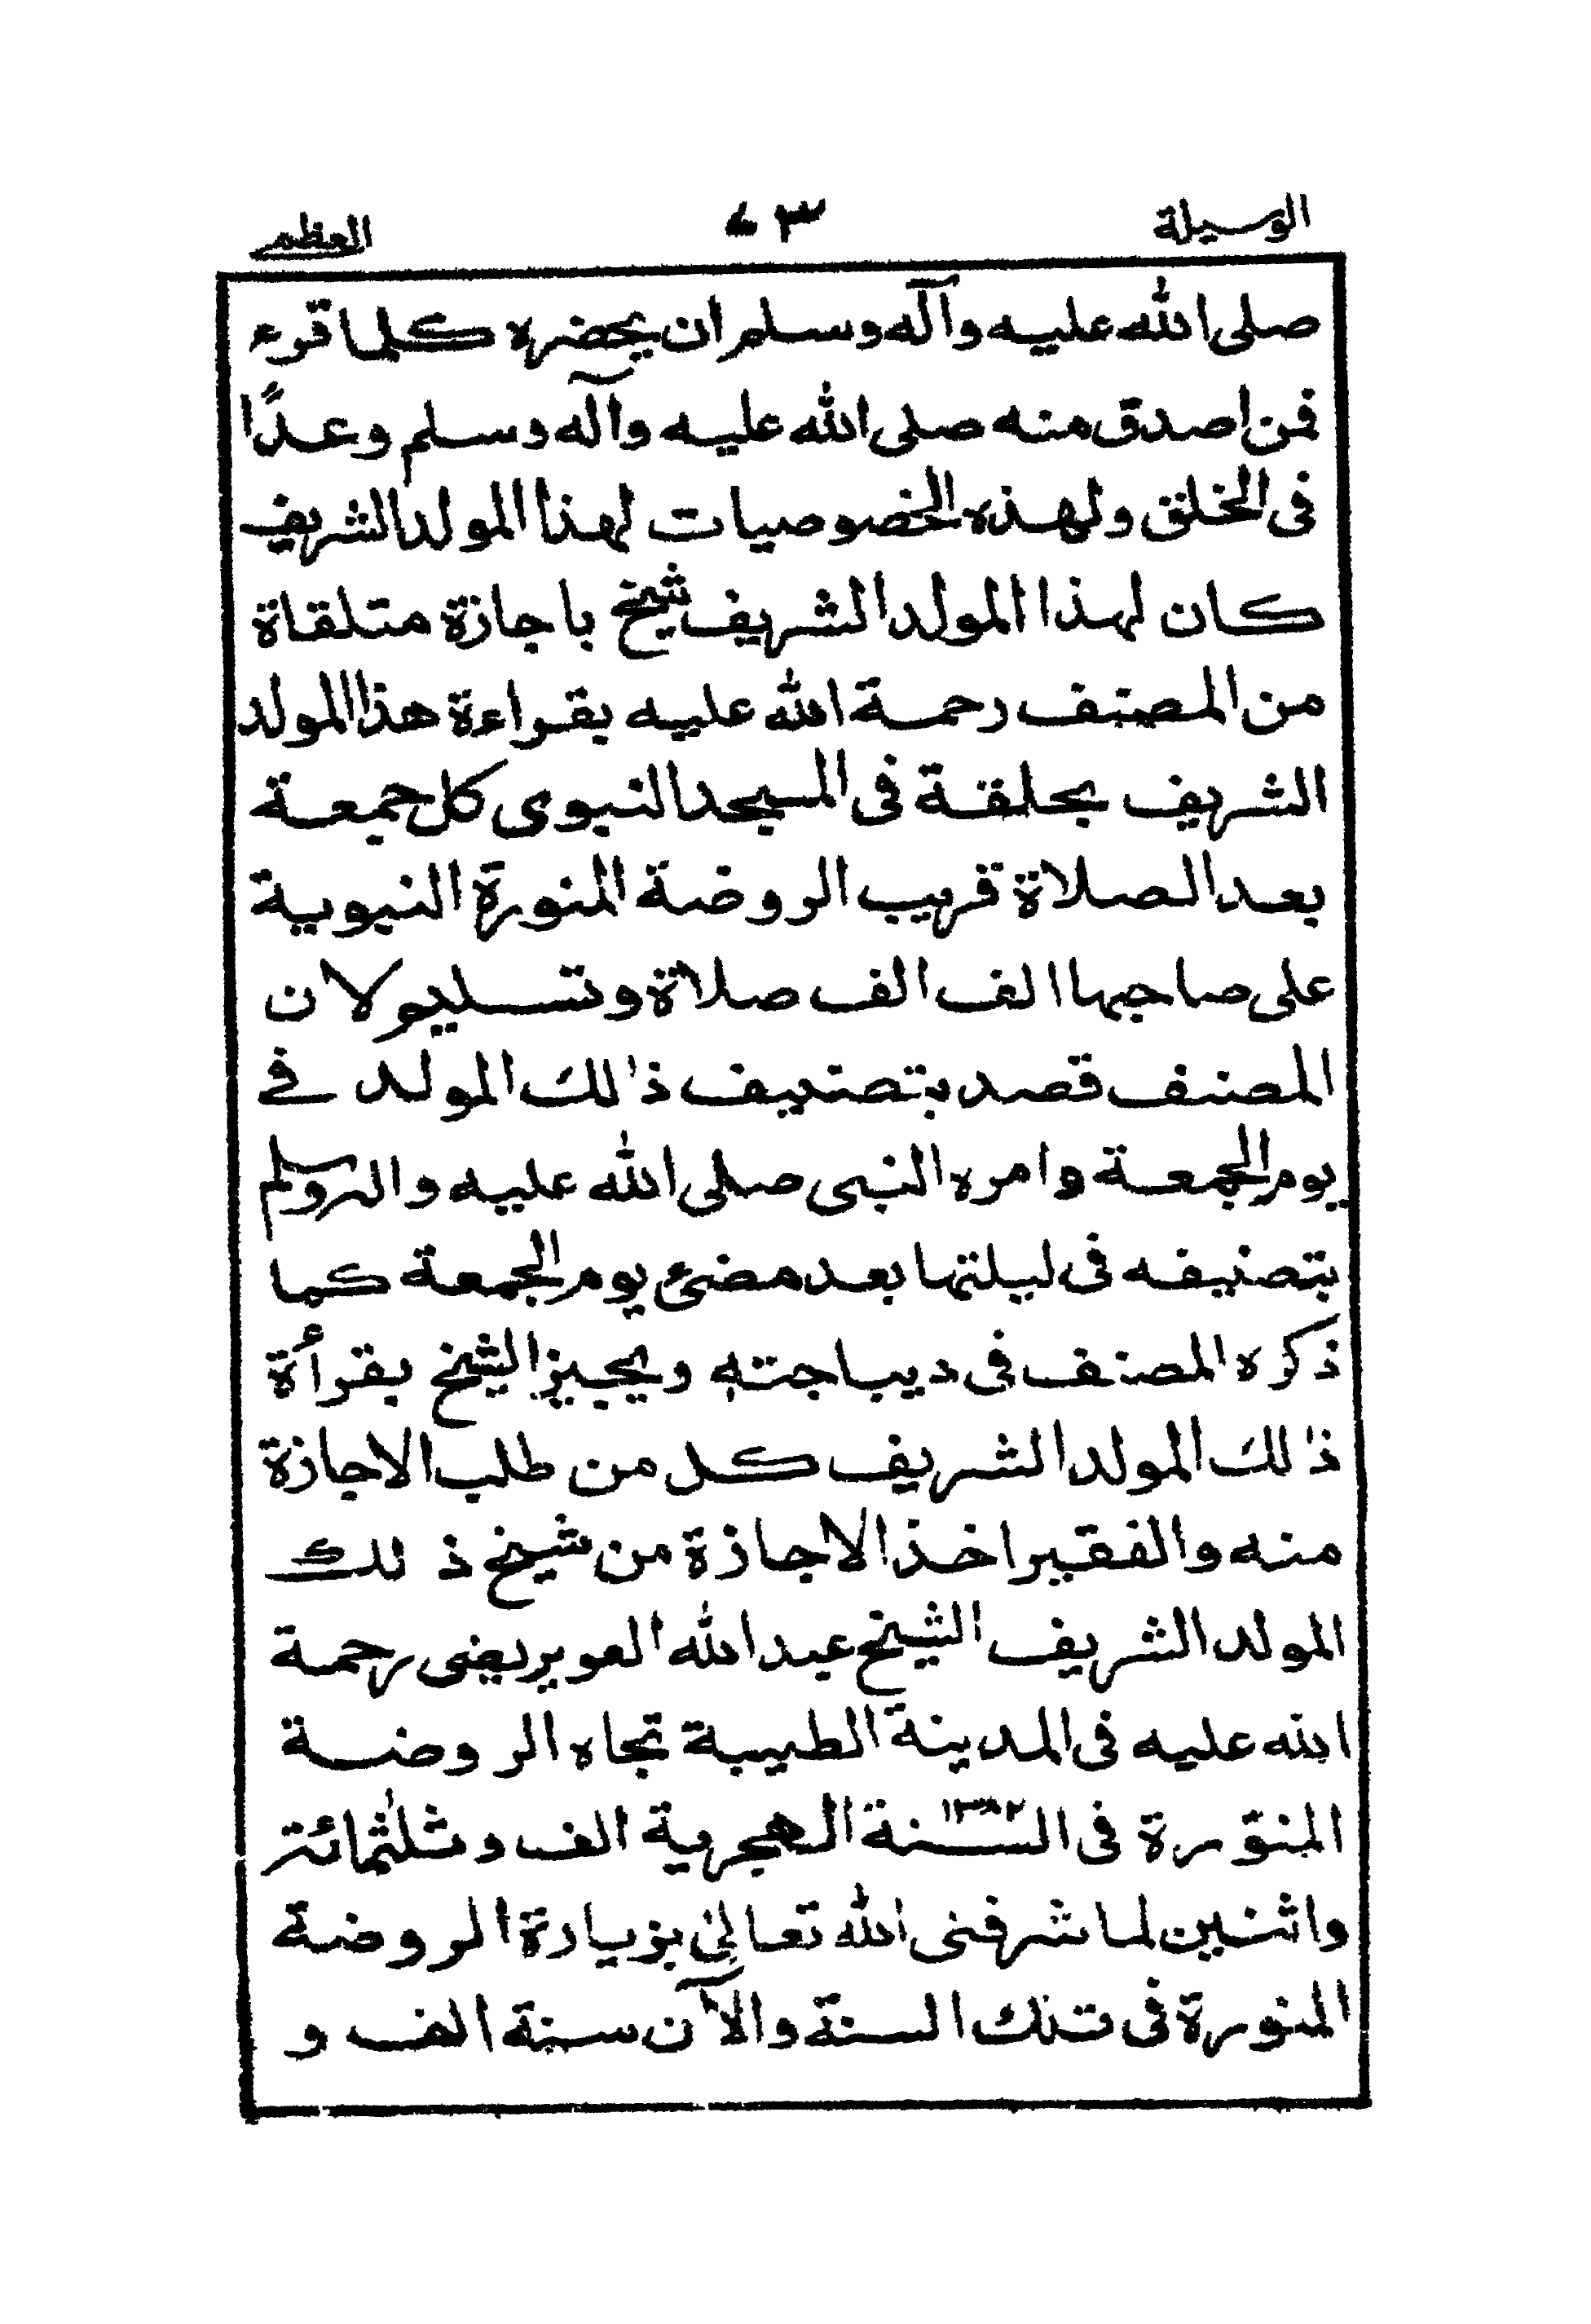 الوسيلة ٤٣ العظمى
صلى الله عليه وآله وسلم ان يحضره كلما قرء
فمن اصدق منه صلى الله عليه وآله وسلم وعدًا
فى الخلق ولهذه الخصوصيات لهذا المولد الشريف
كان لهذا المولد الشريف شيخ باجازة متلقاة
من المصنف رحمة الله عليه بقراءة هذا المولد
الشريف بحلقة فى المسجد النبوى كل جمعة
بعد الصلاة قريب الروضة المنورة النبوية
على صاحبها الف الف صلاة وتسليم لان
المصنف قصد بتصنيف ذٰلك المولد فے
يوم الجمعة وامره النبى صلى الله عليه واله وسلم
بتصنيفه فى ليلتها بعد مضئ يوم الجمعة كما
ذكره المصنف فى ديباجته ويجيز الشيخ بقرأة
ذٰلك المولد الشريف كل من طلب الاجازة
منه والفقير اخذ الاجازة من شيخ ذلك
المولد الشريف الشيخ عبد الله العويريضى رحمة
الله عليه فى المدينة الطيبة تجاه الروضة
المنورة فى السنة ١٣٨٢ الهجرية الف وثلٰثمائة
واثنين لما شرفنى الله تعالىٰ بزيارة الروضة
المنورة فى تلك السنة والآن سنة الف و